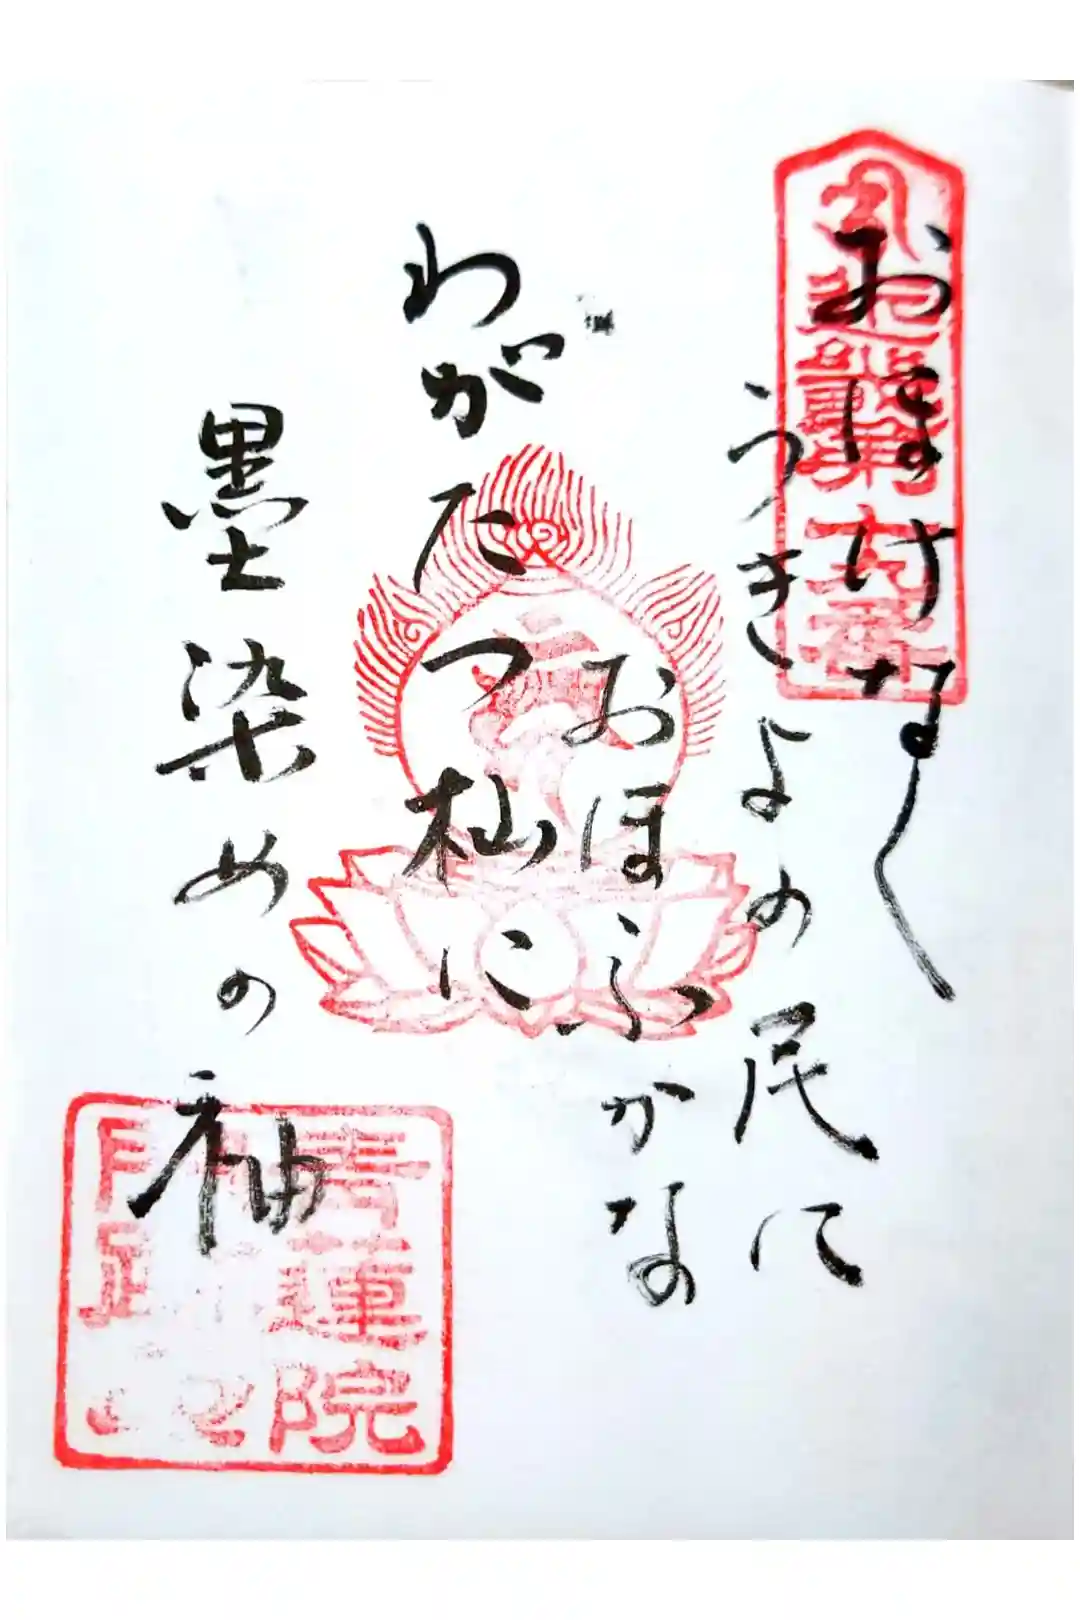 おほけなく
うきよの民に
おほふかな
わがたつ杣に
墨染めの袖
近畿
十番
青蓮院
門跡